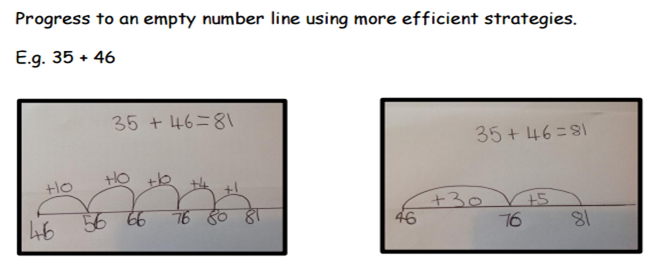 Progress to an empty number line using more efficient strategies.
E.g. 35 + 46
35 + 46 = 81
+10 +10 +10 +4 +1
46 56 66 76 80 81
35 + 46 = 81
+30 +5
46 76 81